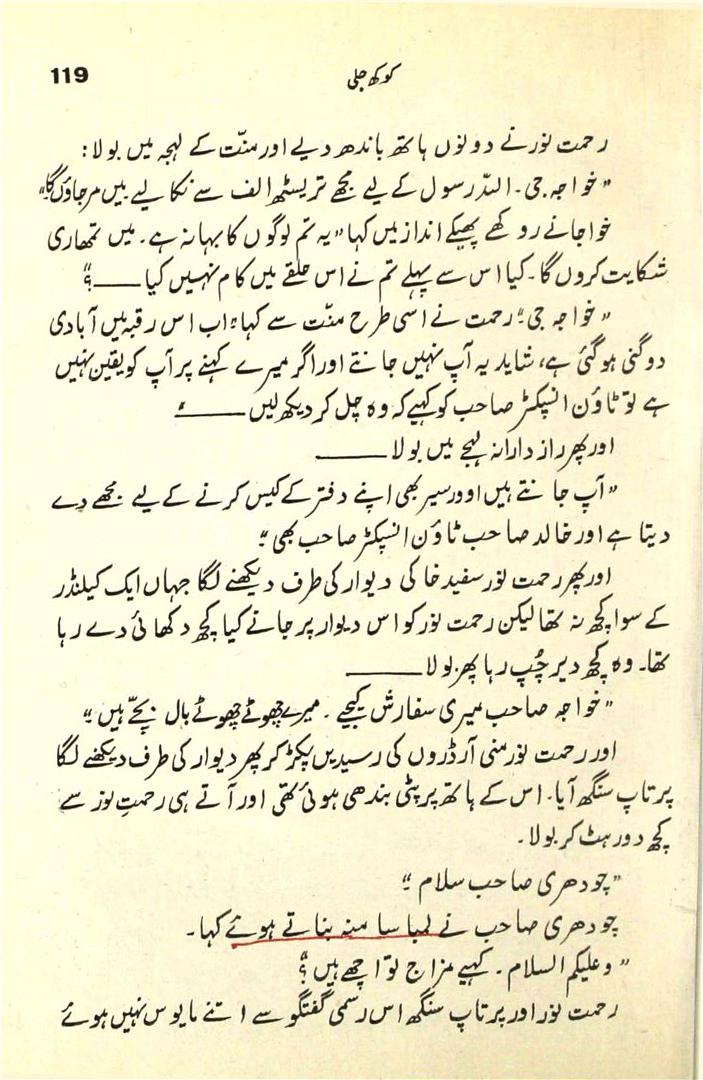 119
کوکھ جلی
رحمت نور نے دونوں ہاتھ باندھ دیے اور منّت کے لہجہ میں بولا:
”خواجہ جی۔ اللہ رسول کے لیے مجھے تریسٹھ الف سے نکالیے میں مر جاؤں گا“
خواجا نے روکھے پھیکے انداز میں کہا ”یہ تم لوگوں کا بہانہ ہے۔ میں تمھاری
شکایت کروں گا۔ کیا اس سے پہلے تم نے اس حلقے میں کام نہیں کیا ——؟“
”خواجہ جی“! رحمت نے اسی طرح منّت سے کہا ”اب اس رقبہ میں آبادی
دوگنی ہو گئی ہے، شاید یہ آپ نہیں جانتے اور اگر میرے کہنے پر آپ کو یقین نہیں
ہے تو ٹاؤن انسپکٹر صاحب کو کہیے کہ وہ چل کر دیکھ لیں ——“
اور پھر رازدارانہ لہجے میں بولا ——
”آپ جانتے ہیں اوورسیر بھی اپنے دفتر کے کیس کرنے کے لیے مجھے دے
دیتا ہے اور خالد صاحب ٹاؤن انسپکٹر صاحب بھی“
اور پھر رحمت نور سفید خا کی دیوار کی طرف دیکھنے لگا جہاں ایک کیلنڈر
کے سوا کچھ نہ تھا لیکن رحمت نور کو اس دیوار پر جانے کیا کچھ دکھائی دے رہا
تھا۔ وہ کچھ دیر چُپ رہا پھر بولا ——
”خواجہ صاحب میری سفارش کیجیے۔ میرے چھوٹے چھوٹے بال بچّے ہیں“
اور رحمت نور منی آرڈروں کی رسیدیں پکڑ کر پھر دیوار کی طرف دیکھنے لگا
پرتاپ سنگھ آیا۔ اس کے ہاتھ پر پٹی بندھی ہوئی تھی اور آتے ہی رحمتِ نور سے
کچھ دور ہٹ کر بولا۔
”چودھری صاحب سلام“
چودھری صاحب نے لمبا سا منہ بناتے ہوئے کہا۔
”وعلیکم السلام۔ کہیے مزاج تو اچھے ہیں؟“
رحمت نور اور پرتاپ سنگھ اس رسمی گفتگو سے اتنے مایوس نہیں ہوئے